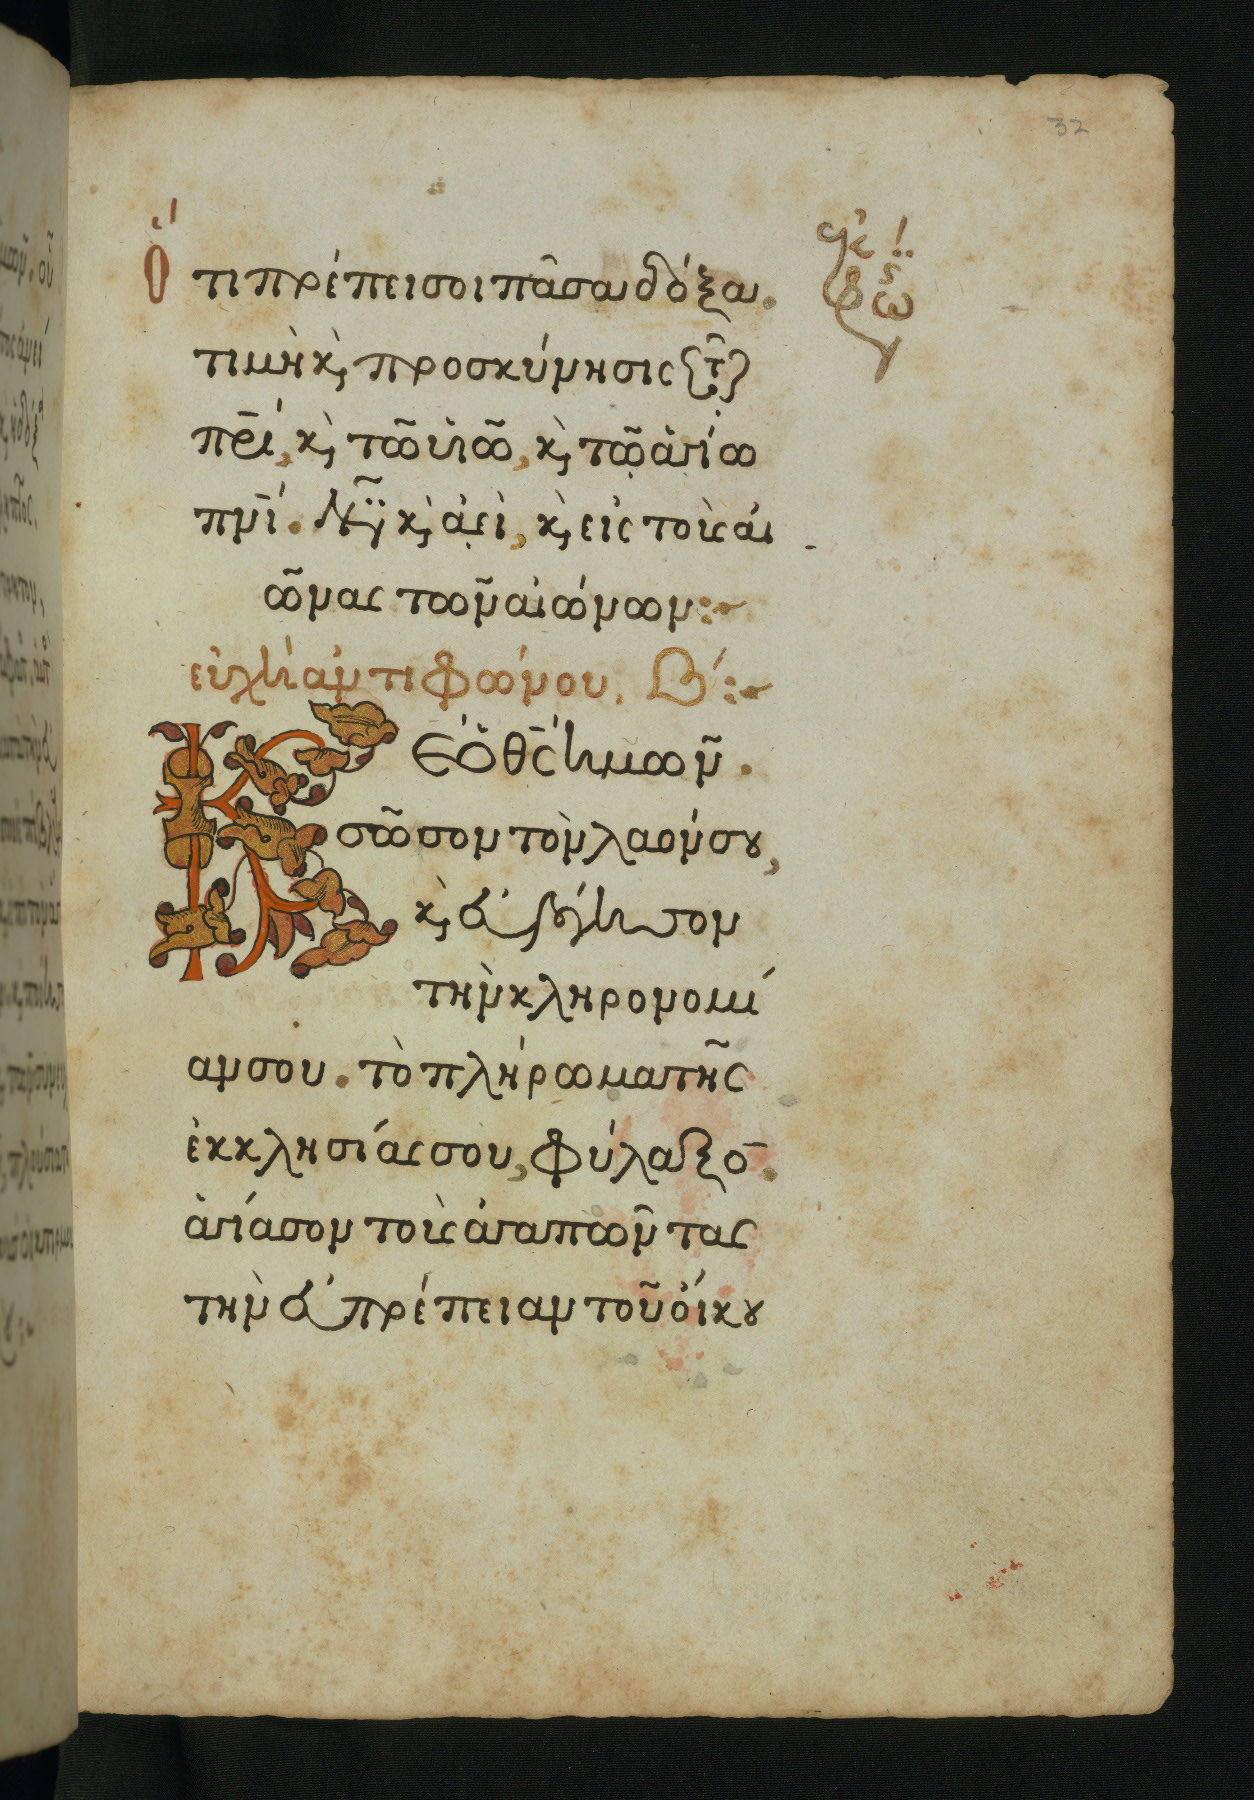 32
Ὅτι πρέπει σοι πᾶσα δόξα.
τιμὴ κ, προσκύνησις τ
πρι, κ, τῶ υἱῶ, κ, τῶ ἁγίω
πνι. Νῦν κ, ἀεὶ, κ, εἰς τοὺς αἰ
ῶνας τῶν αἰώνων:~
εὐχὴ ἀντιφώνου. Β΄:~
Κε ὁ θς ἡμῶν.
σῶσον τὸν λαόν σου,
κ, εὐλόγησον
τὴν κληρονομί
αν σου. τὸ πλήρωμα τῆς
ἐκκλησίας σου, φύλαξο̄.
ἁγίασον τοὺς ἀγαπῶντας
τὴν εὐπρέπειαν τοῦ οἴκου